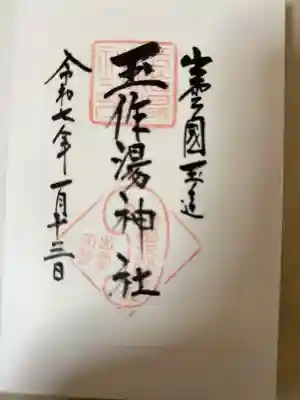 出雲國玉造
玉作湯神社
令和七年一月十三日